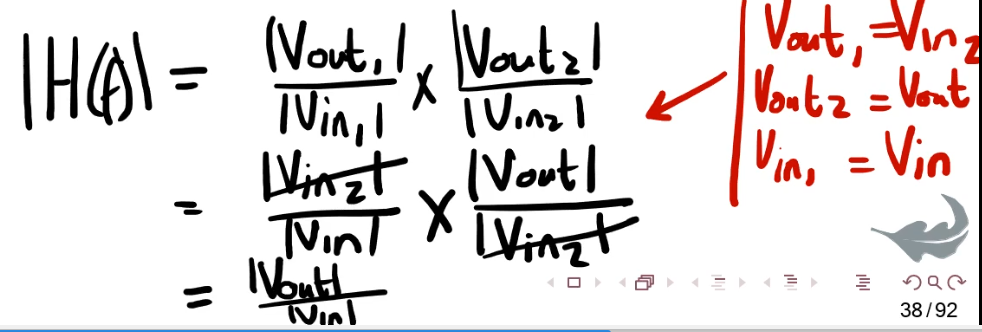 |H(f)| = |Vout₁| / |Vin₁| × |Vout₂| / |Vin₂|
= |Vin₂| / |Vin| × |Vout| / |Vin₂|
= |Vout| / |Vin|
Vout₁ = Vin₂
Vout₂ = Vout
Vin₁ = Vin
38/92